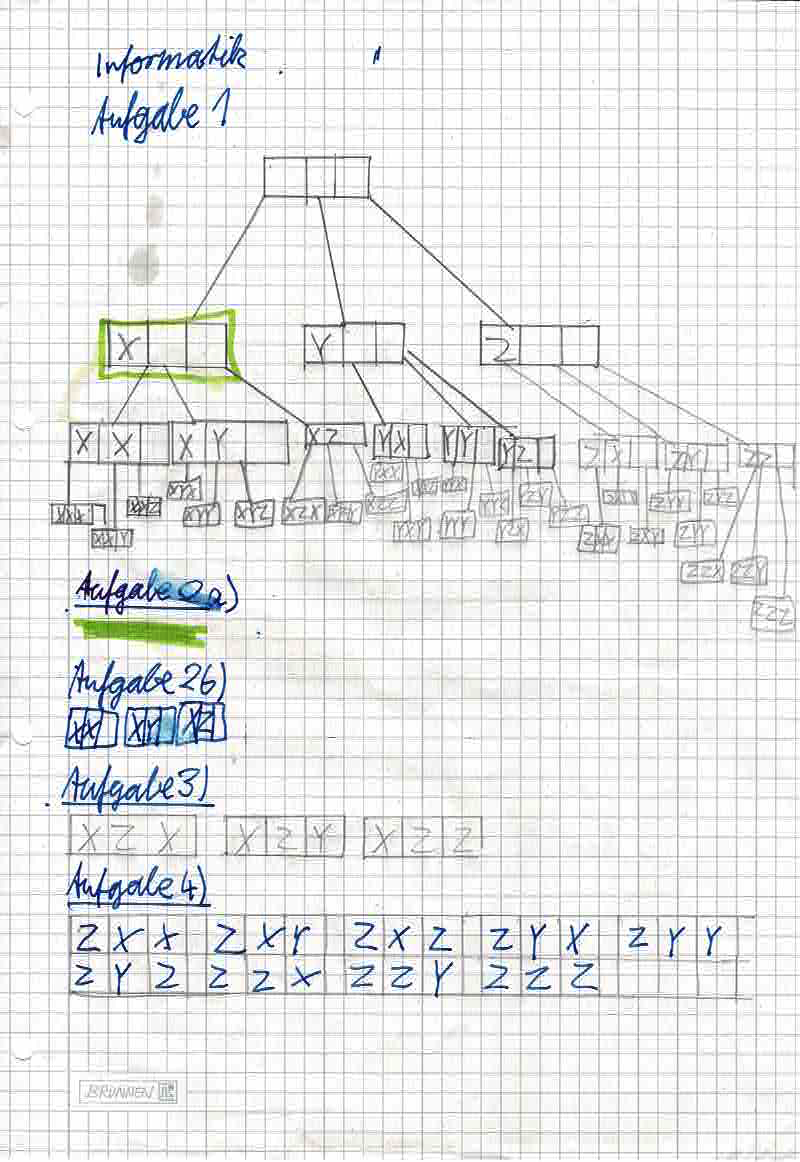 Informatik
Aufgabe 1
X Y Z
X X X Y X Z Y X Y Y Y Z Z X Z Y Z Z
XYX ZYX ZYZ
XXX XXZ XYY XYZ XZX YYY YZX ZXX ZXY ZYY
XXY YXY
ZZX ZZY
ZZZ
Aufgabe 2a)
Aufgabe 2b)
XX XY XZ
Aufgabe 3)
X Z X X Z Y X Z Z
Aufgabe 4)
Z X X Z X Y Z X Z Z Y X Z Y Y
Z Y Z Z Z X Z Z Y Z Z Z
BRUNNEN